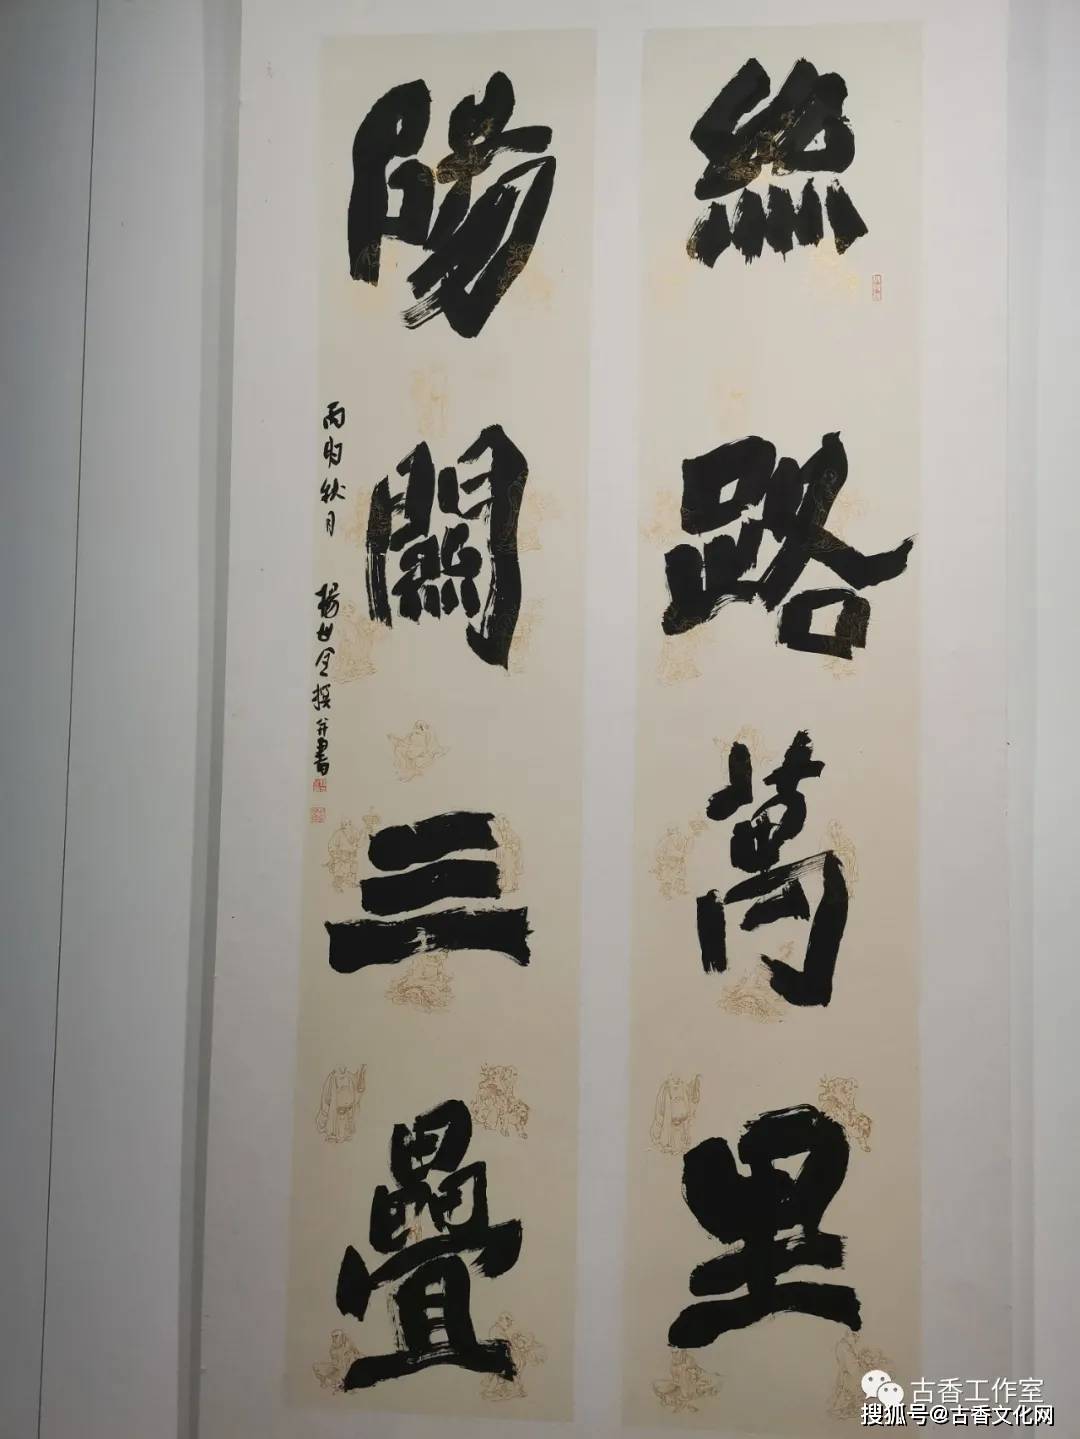 絲路萬里
陽關三疊
丙申秋月 楊世全撰并書
古香工作室
搜狐号@古香文化网